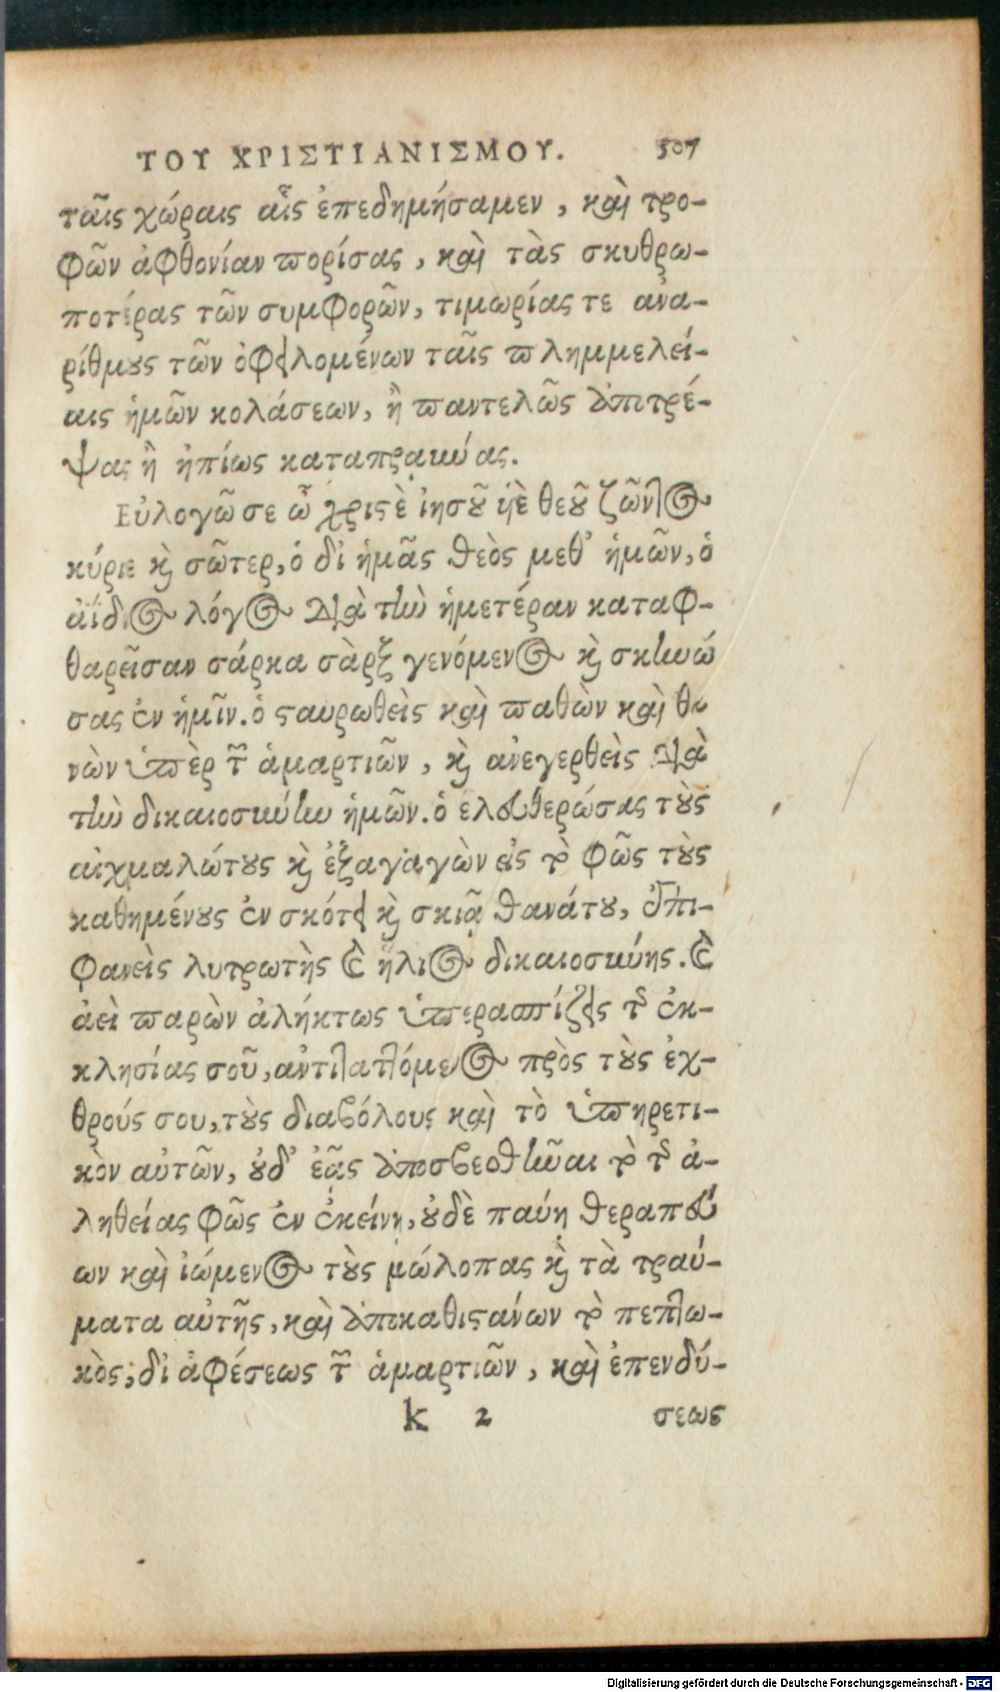 ΤΟΥ ΧΡΙΣΤΙΑΝΙΣΜΟΥ. 507
ταῖς χώραις αἷς ἐπεδημήσαμεν, καὶ τρο-
φῶν ἀφθονίαν πορίσας, καὶ τὰς σκυθρω-
ποτέρας τῶν συμφορῶν, τιμωρίας τε ἀνα-
ρίθμους τῶν ὀφειλομένων ταῖς πλημμελεί-
αις ἡμῶν κολάσεων, ἢ παντελῶς ἀποτρέ-
ψας ἢ ἠπίως καταπραΰνας.
Εὐλογῶ σε ὦ χριστὲ ἰησοῦ υἱὲ θεοῦ ζῶντος
κύριε καὶ σῶτερ, ὁ δι' ἡμᾶς θεὸς μεθ' ἡμῶν, ὁ
ἀίδιος λόγος διὰ τὴν ἡμετέραν καταφ-
θαρεῖσαν σάρκα σὰρξ γενόμενος καὶ σκηνώ
σας ἐν ἡμῖν. ὁ σταυρωθεὶς καὶ παθὼν καὶ θα
νὼν ὑπὲρ τῶν ἁμαρτιῶν, καὶ ἀνεγερθεὶς διὰ
τὴν δικαιοσύνην ἡμῶν. ὁ ἐλευθερώσας τοὺς
αἰχμαλώτους καὶ ἐξαγαγὼν εἰς τὸ φῶς τοὺς
καθημένους ἐν σκότει καὶ σκιᾷ θανάτου, ἐπι-
φανεὶς λυτρωτὴς καὶ ἥλιος δικαιοσύνης. καὶ
ἀεὶ παρὼν ἀλήκτως ὑπερασπίζεις τῆς ἐκ-
κλησίας σοῦ, ἀντιλαττόμενος πρὸς τοὺς ἐχ-
θρούς σου, τοὺς διαβόλους καὶ τὸ ὑπηρετι-
κὸν αὐτῶν, οὐδ' ἐᾷς ἀποσβεσθῆναι τὸ τῆς ἀ-
ληθείας φῶς ἐν ἐκείνῃ, οὐδὲ παύῃ θεραπεύ
ων καὶ ἰώμενος τοὺς μώλοπας καὶ τὰ τραύ-
ματα αὐτῆς, καὶ ἀποκαθιστάνων τὸ πεπτω-
κὸς, δι' ἀφέσεως τῶν ἁμαρτιῶν, καὶ ἐπενδύ-
k 2 σεως
Digitalisierung gefördert durch die Deutsche Forschungsgemeinschaft - DFG